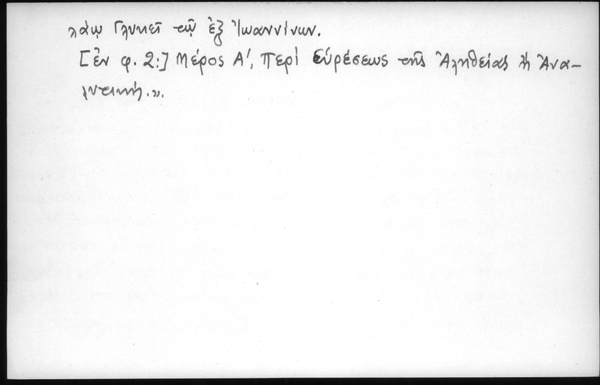 λάῳ Γλυκεῖ τῷ ἐξ Ἰωαννίνων.
[ἐν φ. 2:] Μέρος Α', Περὶ Εὑρέσεως τῆς Ἀληθείας ἢ Ἀνα-
λυτική.».